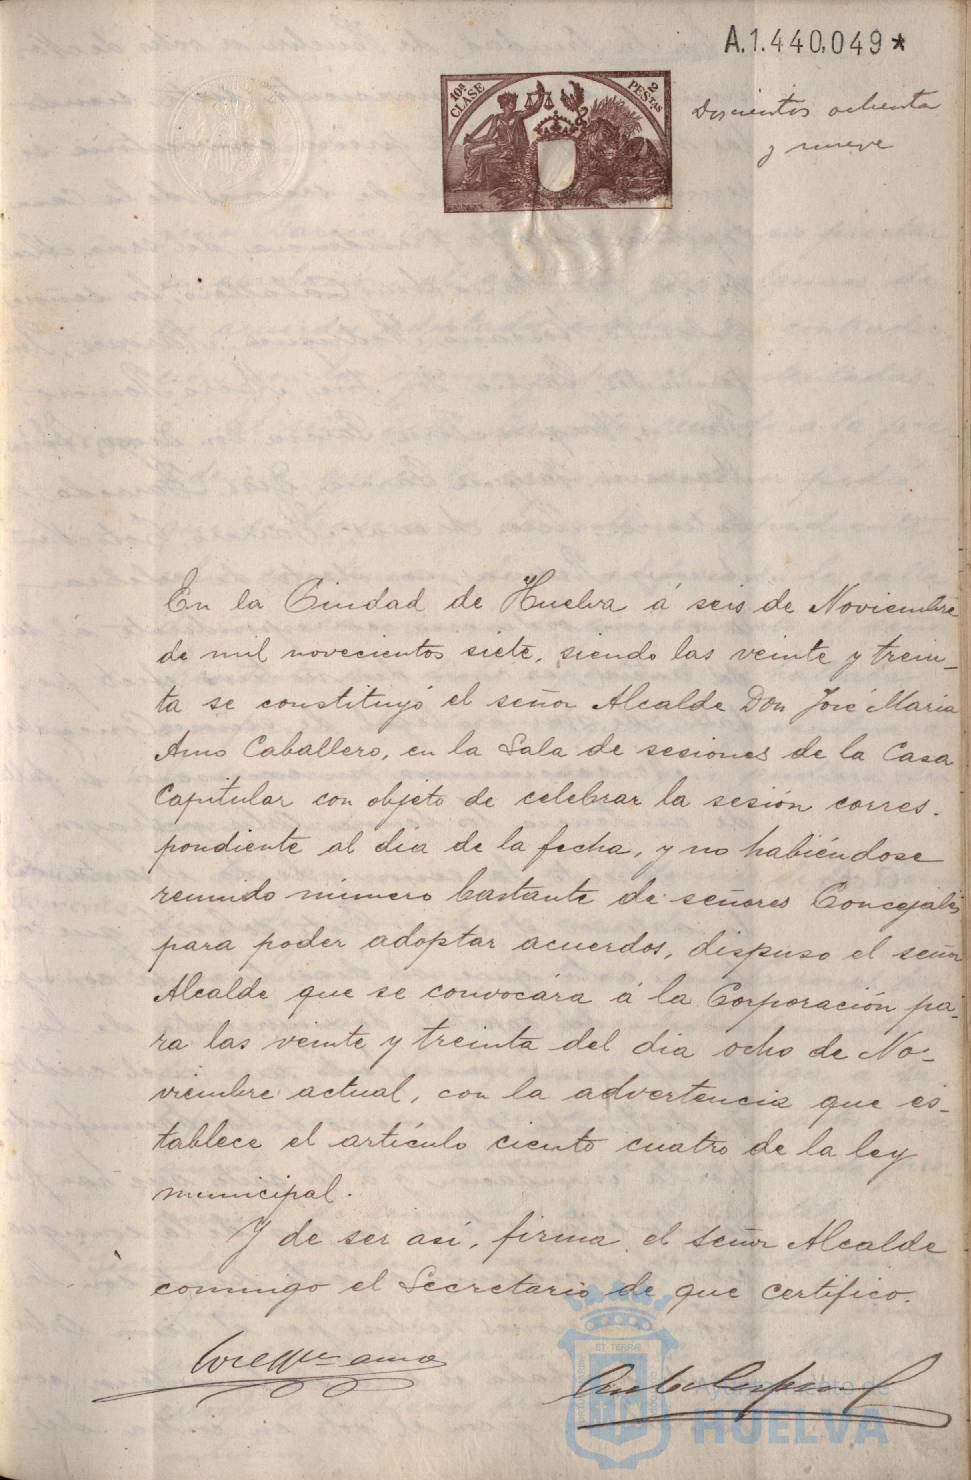 A.1.440,049*
10ª CLASE
2 PESTAS
Doscientos ochenta
y nueve
En la Ciudad de Huelva á seis de Noviembre
de mil novecientos siete, siendo las veinte y trein-
ta se constituyó el señor Alcalde Don José Maria
Amo Caballero, en la Sala de sesiones de la Casa
Capitular con objeto de celebrar la sesión corres-
pondiente al dia de la fecha, y no habiéndose
reunido número bastante de señores Concejales
para poder adoptar acuerdos, dispuso el señor
Alcalde que se convocára á la Corporación pa-
ra las veinte y treinta del dia ocho de No-
viembre actual, con la advertencia que es-
tablece el artículo ciento cuatro de la ley
municipal.
Y de ser así, firma el señor Alcalde
conmigo el Secretario de que certifico.
ET TERRÆ
Ayuntamiento de
HUELVA